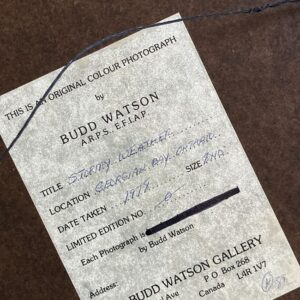 THIS IS AN ORIGINAL COLOUR PHOTOGRAPH
by
BUDD WATSON
A.R.P.S. E.F.I.A.P.
TITLE STORMY WEATHER
LOCATION GEORGIAN BAY, ONTARIO
DATE TAKEN 1978 SIZE
LIMITED EDITION NO.
Each Photograph is
by Budd Watson
BUDD WATSON GALLERY
Address: P O Box 268
Ave Canada L4R 1V7